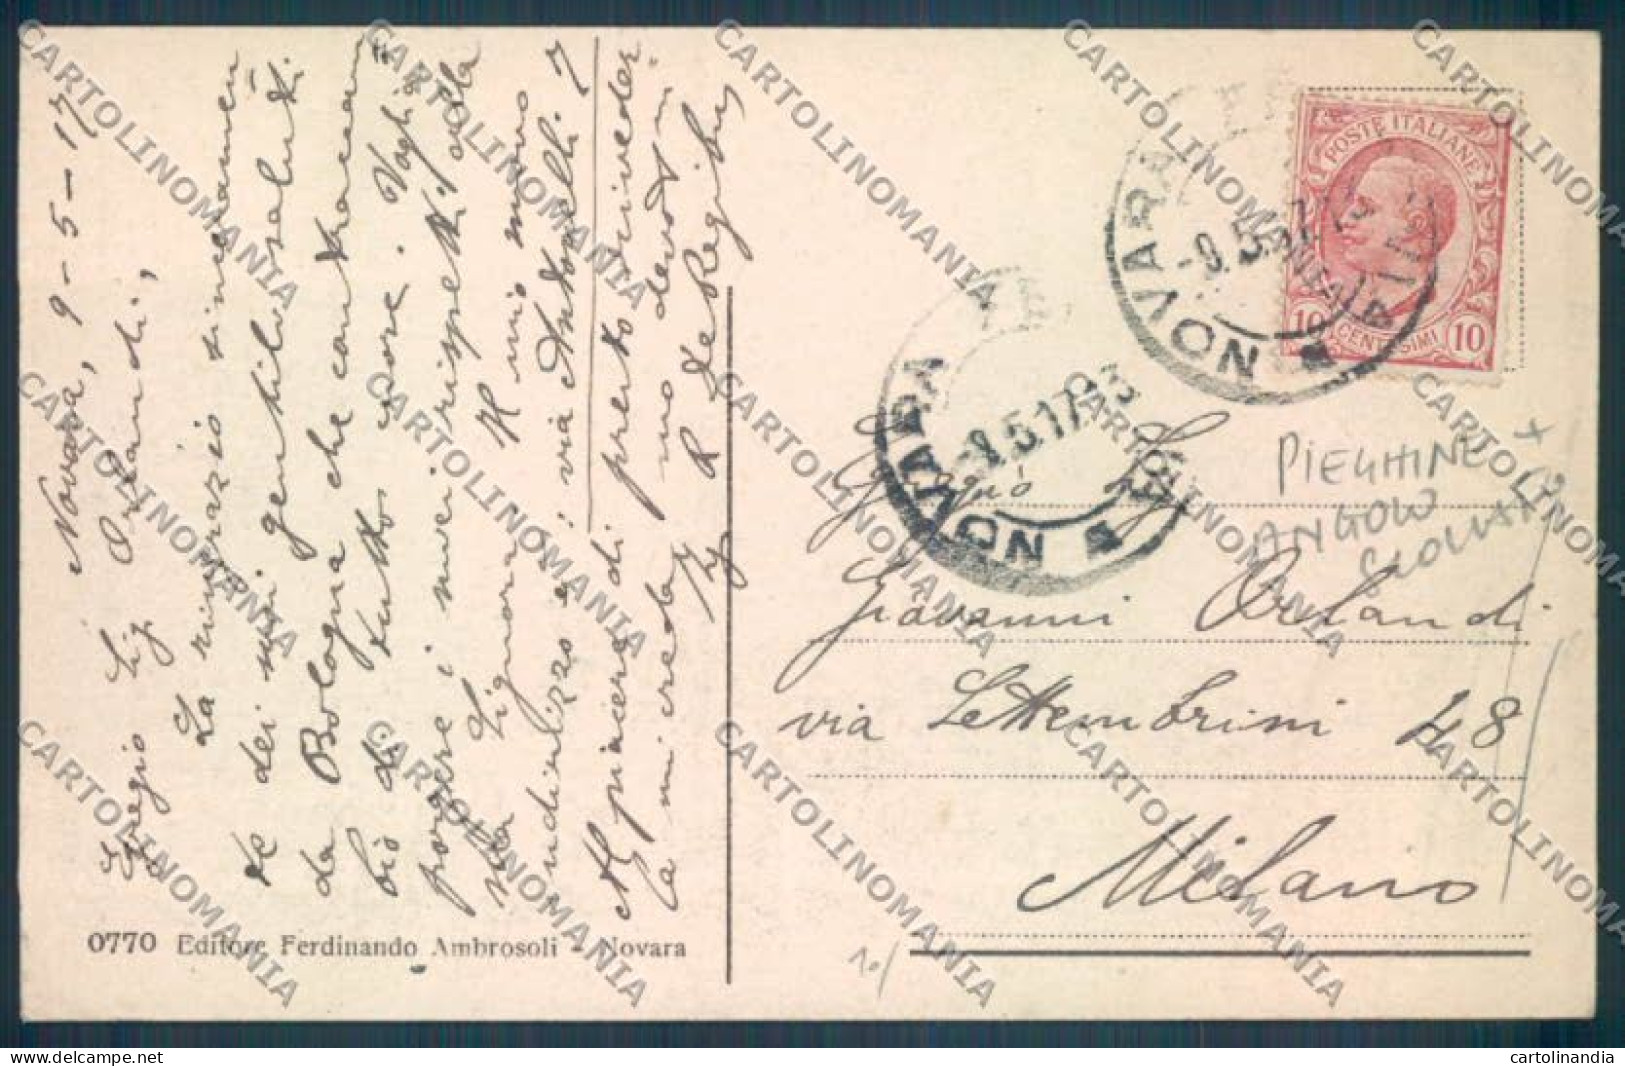 Novara, 9-5-17
Egregio Sig. Orlandi,
La ringrazio sinceramen
te dei suoi gentili saluti
da Bologna che contraccam
bio di tutto cuore. Voglia
porgere i miei rispetti alla
sua Signora. Il mio nuovo
indirizzo è: via Antonelli 7
Al piacere di presto riveder
la mi creda suo devot.mo
R. De Reg
POSTE ITALIANE
10 CENTESIMI 10
NOVARA
9.5.17
NOVARA
9.5.17
PIEGHINE +
ANGOLO
Sig.
Giovanni Orlandi
via Settembrini 48
Milano
0770 Editore Ferdinando Ambrosoli - Novara
No
CARTOLINOMANIA
www.delcampe.net
cartolinandia